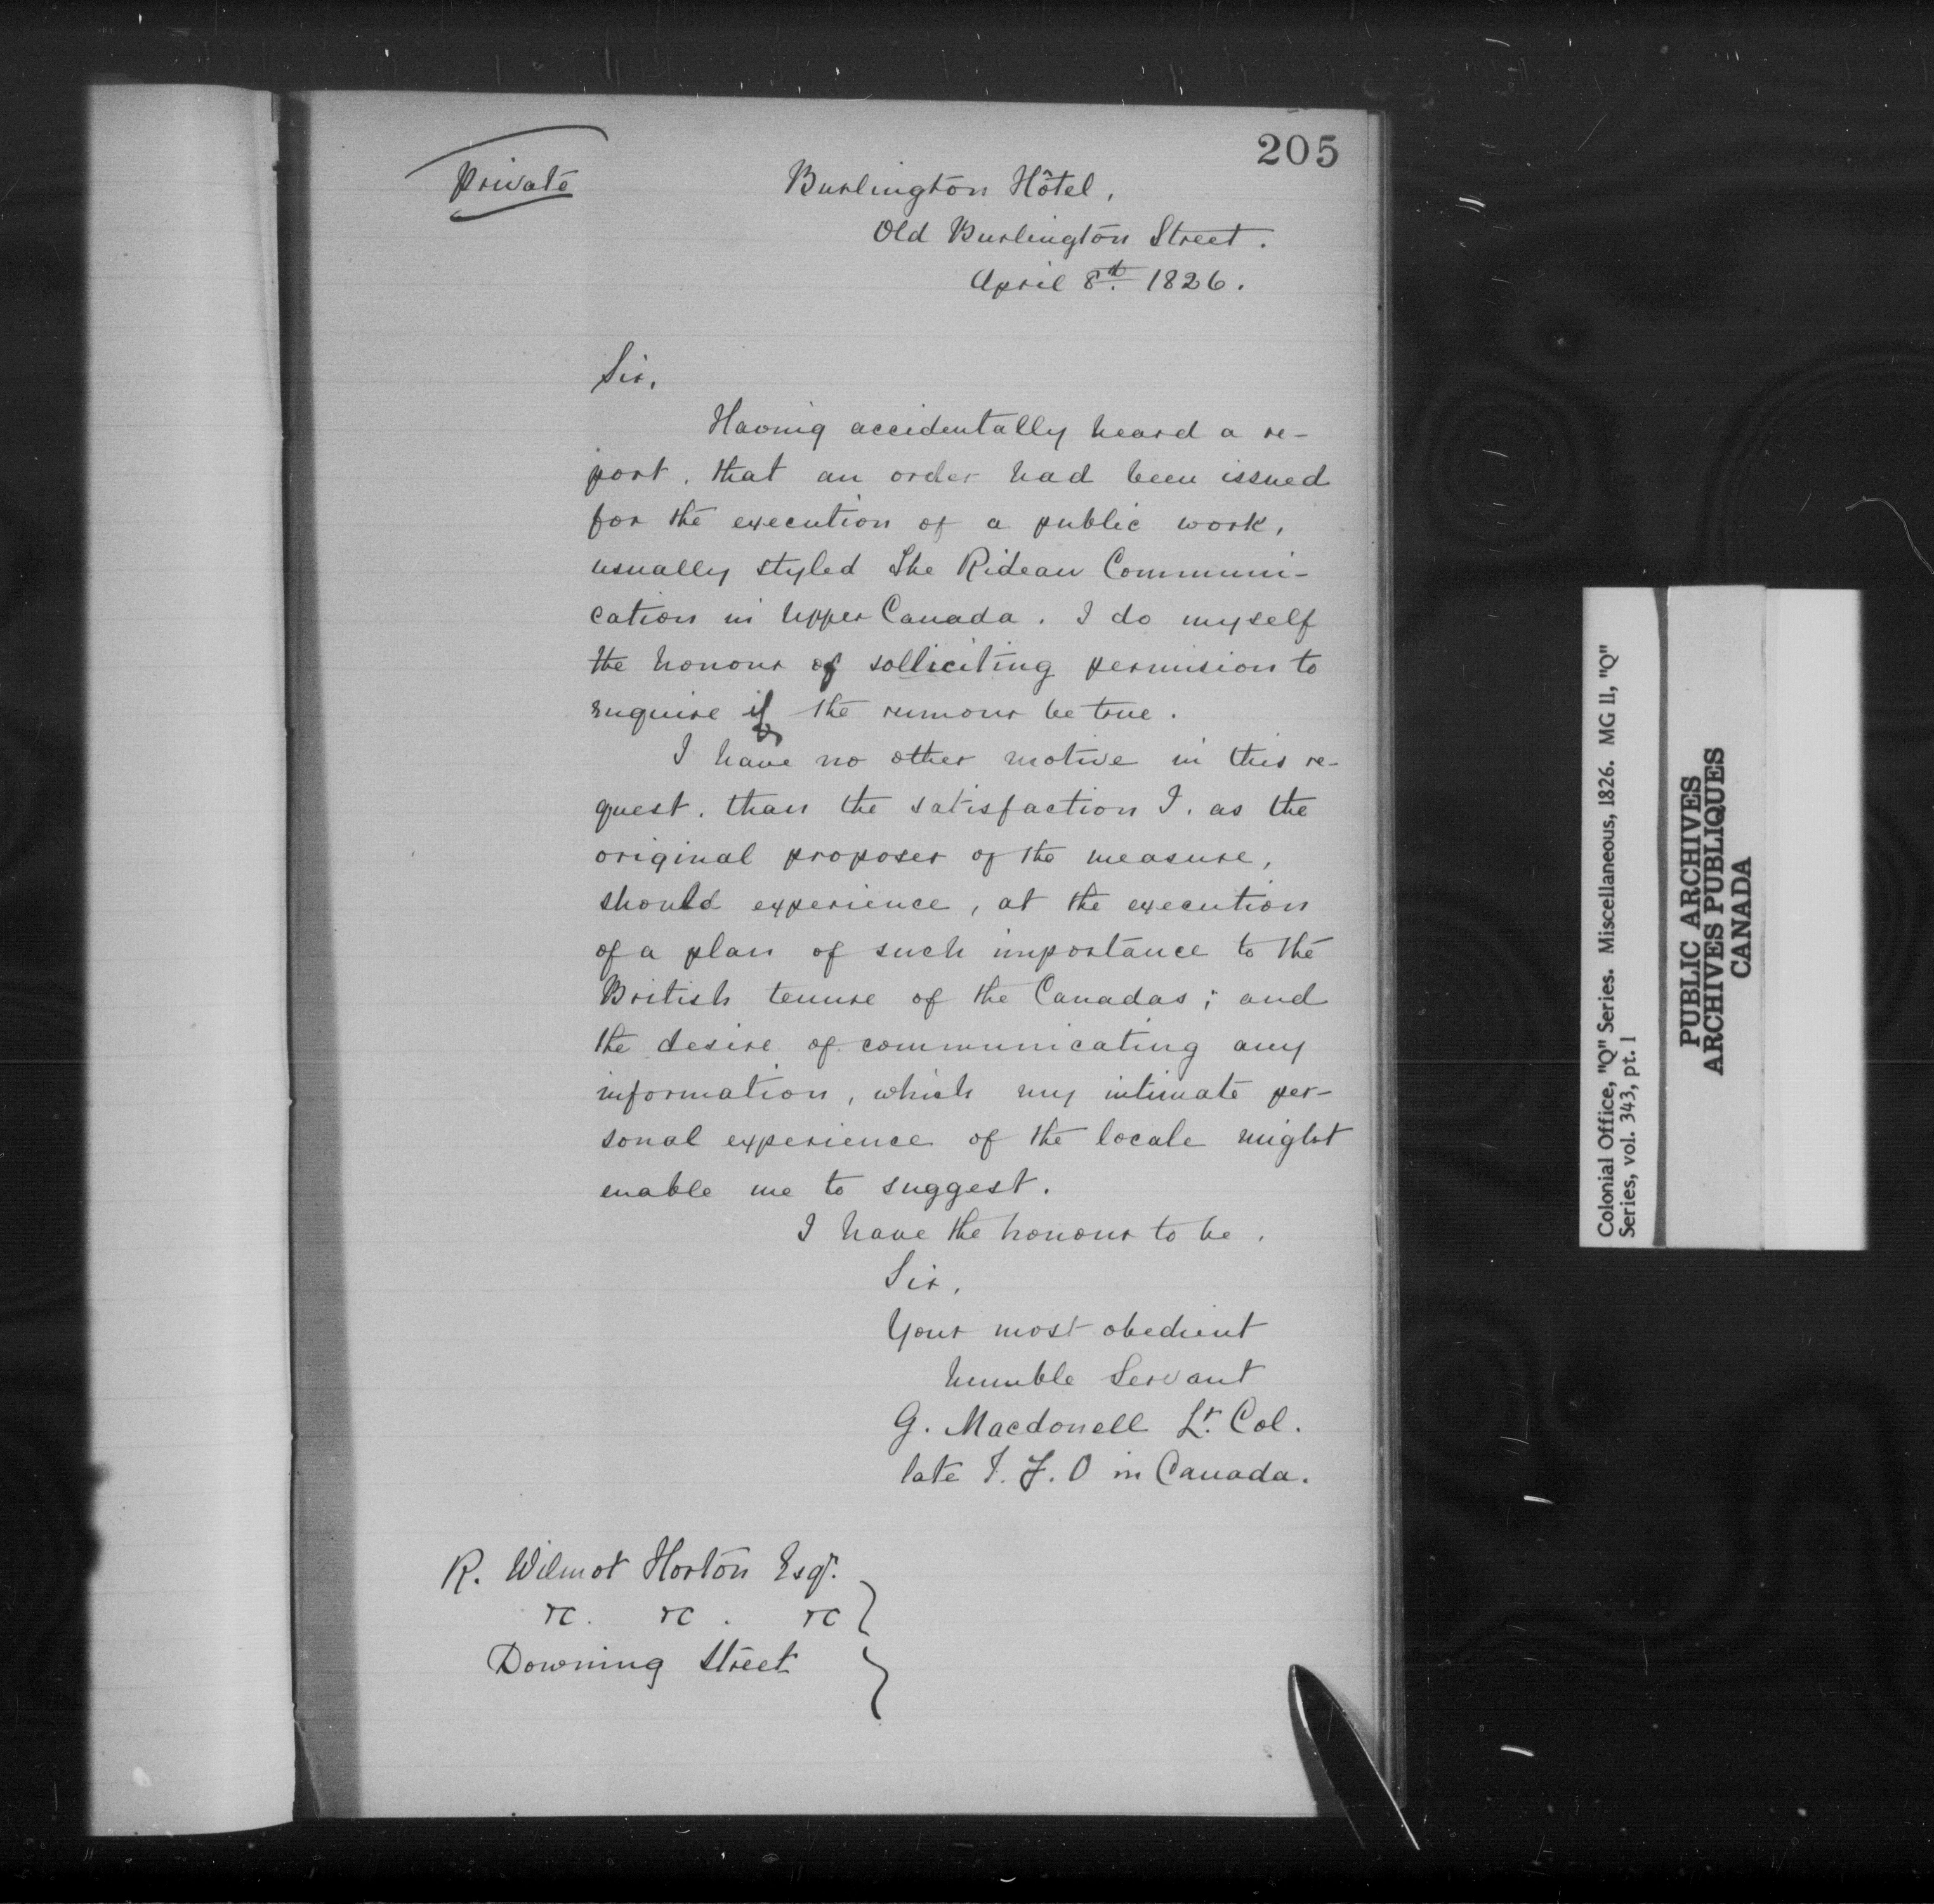 205
Private
Burlington Hôtel,
Old Burlington Street.
April 8th. 1826.
Sir,
Having accidentally heard a re-
port, that an order had been issued
for the execution of a public work,
usually styled The Rideau Communi-
cation in Upper Canada. I do myself
the honour of solliciting permision to
enquire if the rumour be true.
I have no other motive in this re-
quest, than the satisfaction I, as the
original proposer of the measure,
should experience, at the execution
of a plan of such importance to the
British tenure of the Canadas; and
the desire of communicating any
information, which my intimate per-
sonal experience of the locale might
enable me to suggest.
I have the honour to be,
Sir,
Your most obedient
humble Servant
G. Macdonell Lt. Col.
late I. F. O in Canada.
R. Wilmot Horton Esqr.
&c. &c. &c
Downing Street
Colonial Office, "Q" Series. Miscellaneous, 1826. MG 11, "Q"
Series, vol. 343, pt. 1
PUBLIC ARCHIVES
ARCHIVES PUBLIQUES
CANADA